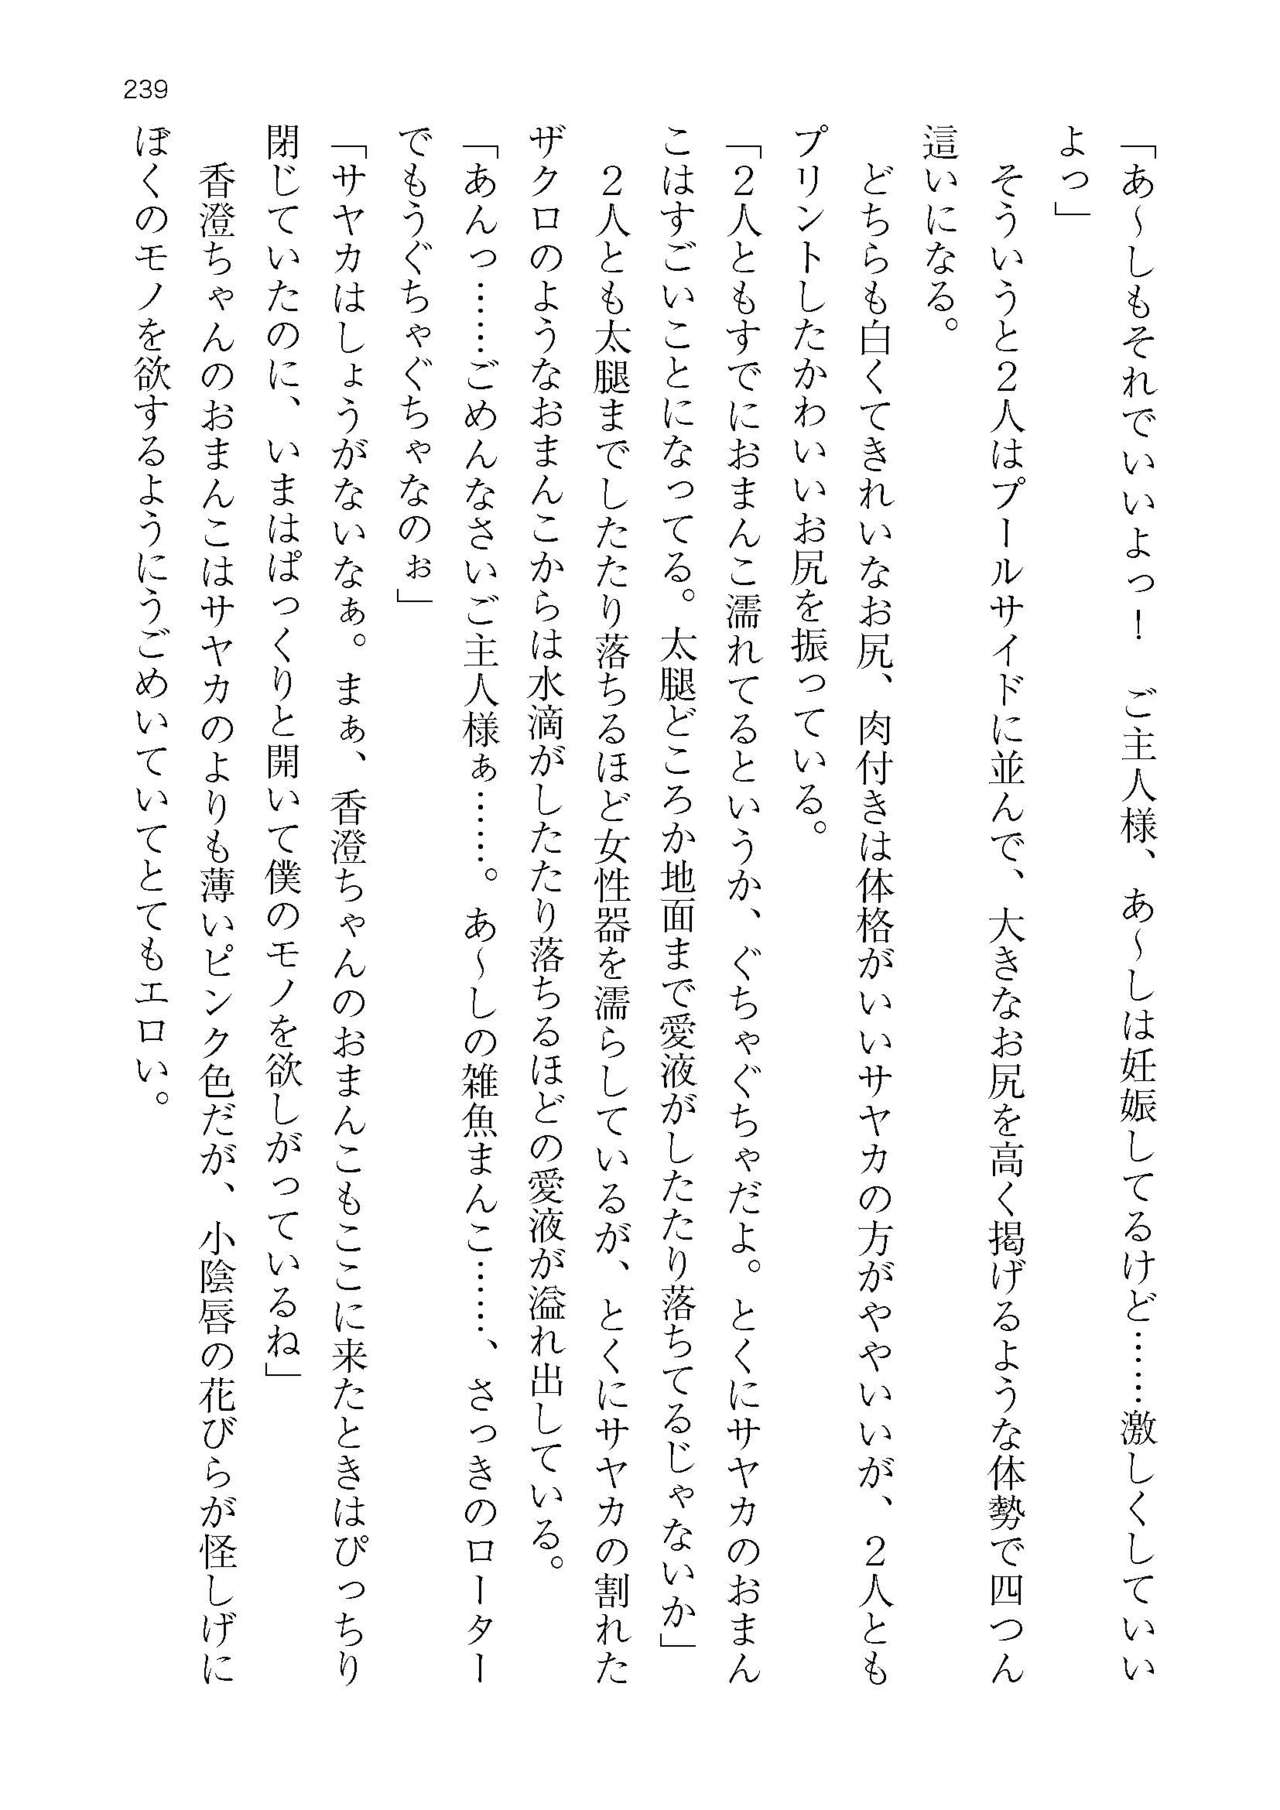 239
「あ～しもそれでいいよっ！　ご主人様、あ～しは妊娠してるけど……激しくしていい
よっ」
　そういうと２人はプールサイドに並んで、大きなお尻を高く掲げるような体勢で四つん
這いになる。
　どちらも白くてきれいなお尻、肉付きは体格がいいサヤカの方がややいいが、２人とも
プリントしたかわいいお尻を振っている。
「２人ともすでにおまんこ濡れてるというか、ぐちゃぐちゃだよ。とくにサヤカのおまん
こはすごいことになってる。太腿どころか地面まで愛液がしたたり落ちてるじゃないか」
　２人とも太腿までしたたり落ちるほど女性器を濡らしているが、とくにサヤカの割れた
ザクロのようなおまんこからは水滴がしたたり落ちるほどの愛液が溢れ出している。
「あんっ……ごめんなさいご主人様ぁ……。あ～しの雑魚まんこ……、さっきのローター
でもうぐちゃぐちゃなのぉ」
「サヤカはしょうがないなぁ。まぁ、香澄ちゃんのおまんこもここに来たときはぴっちり
閉じていたのに、いまはぱっくりと開いて僕のモノを欲しがっているね」
　香澄ちゃんのおまんこはサヤカのよりも薄いピンク色だが、小陰唇の花びらが怪しげに
ぼくのモノを欲するようにうごめいていてとてもエロい。